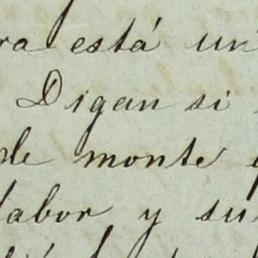 está un
Digan si
de monte
labor y su